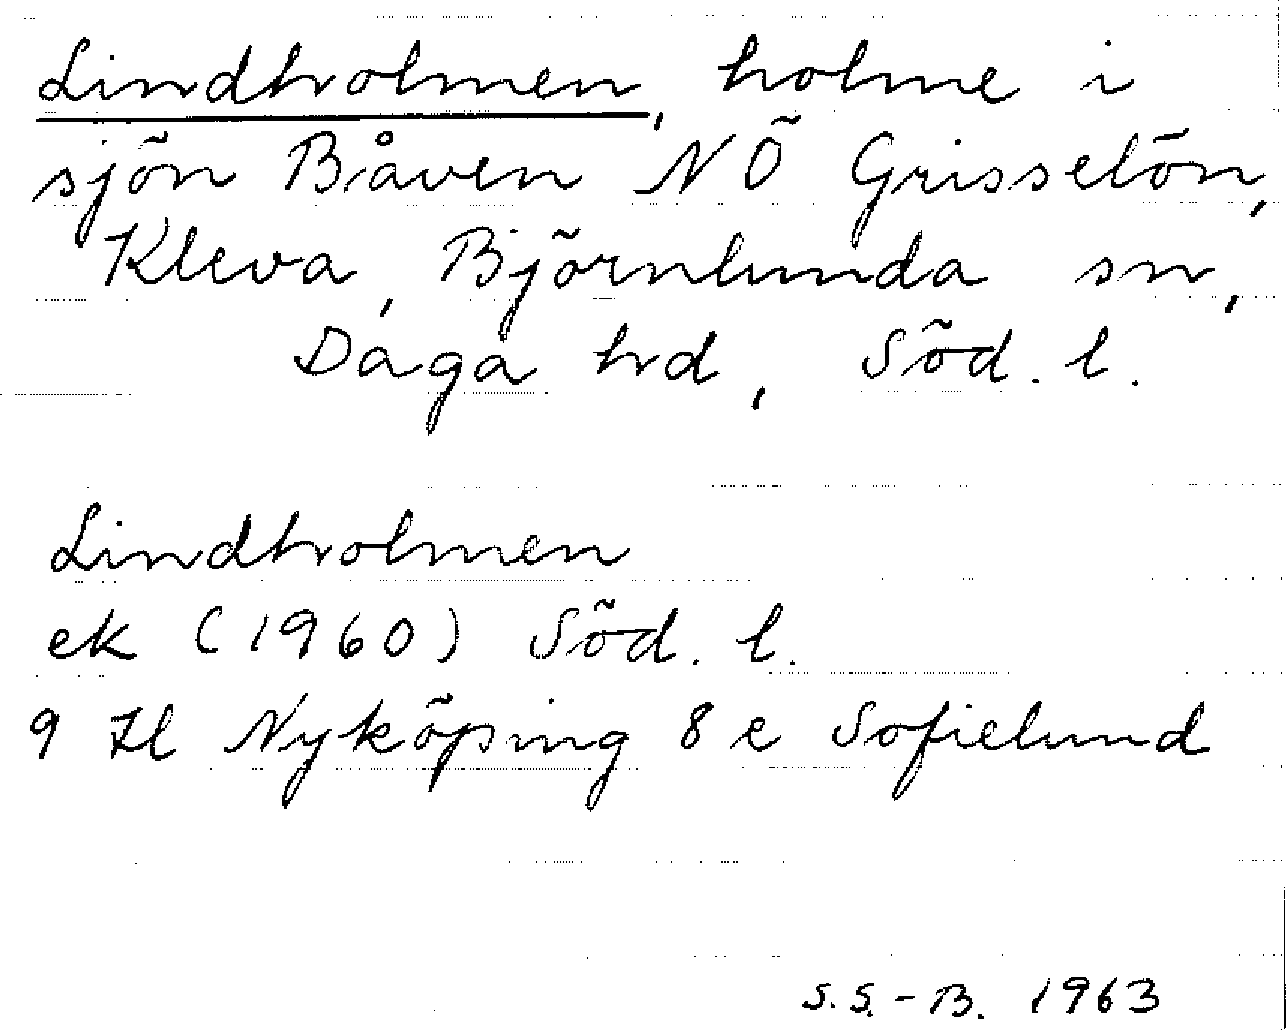 Lindholmen, holme i
sjön Båven NÖ Grisselön,
Kleva, Björnlunda sn,
Daga hd, Söd. l.
Lindholmen
ek (1960) Söd. l.
9 H Nyköping 8 e Sofielund
S.S.-B. 1963